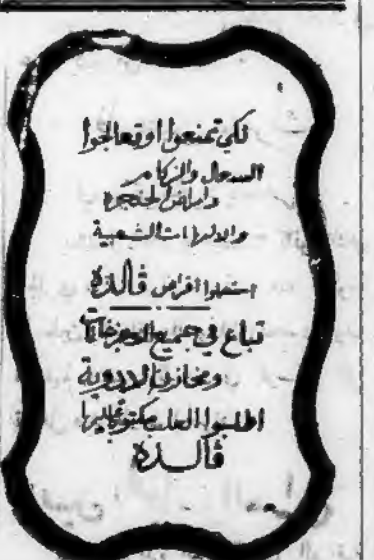 لكي تمنعوا او تعالجوا
السعال والزكام
وامراض الحنجرة
والالتهابات الشعبية
استعملوا اقراص ڤالدة
تباع في جميع الاجزاخانات
ومخازن الادوية
اطلبوا العلب مكتوب عليها
ڤالدة